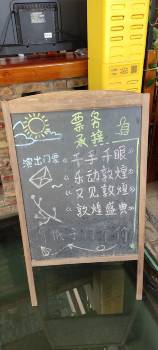 票务
承接
演出门票
《千手千眼》
《乐动敦煌》
《又见敦煌》
《敦煌盛典》